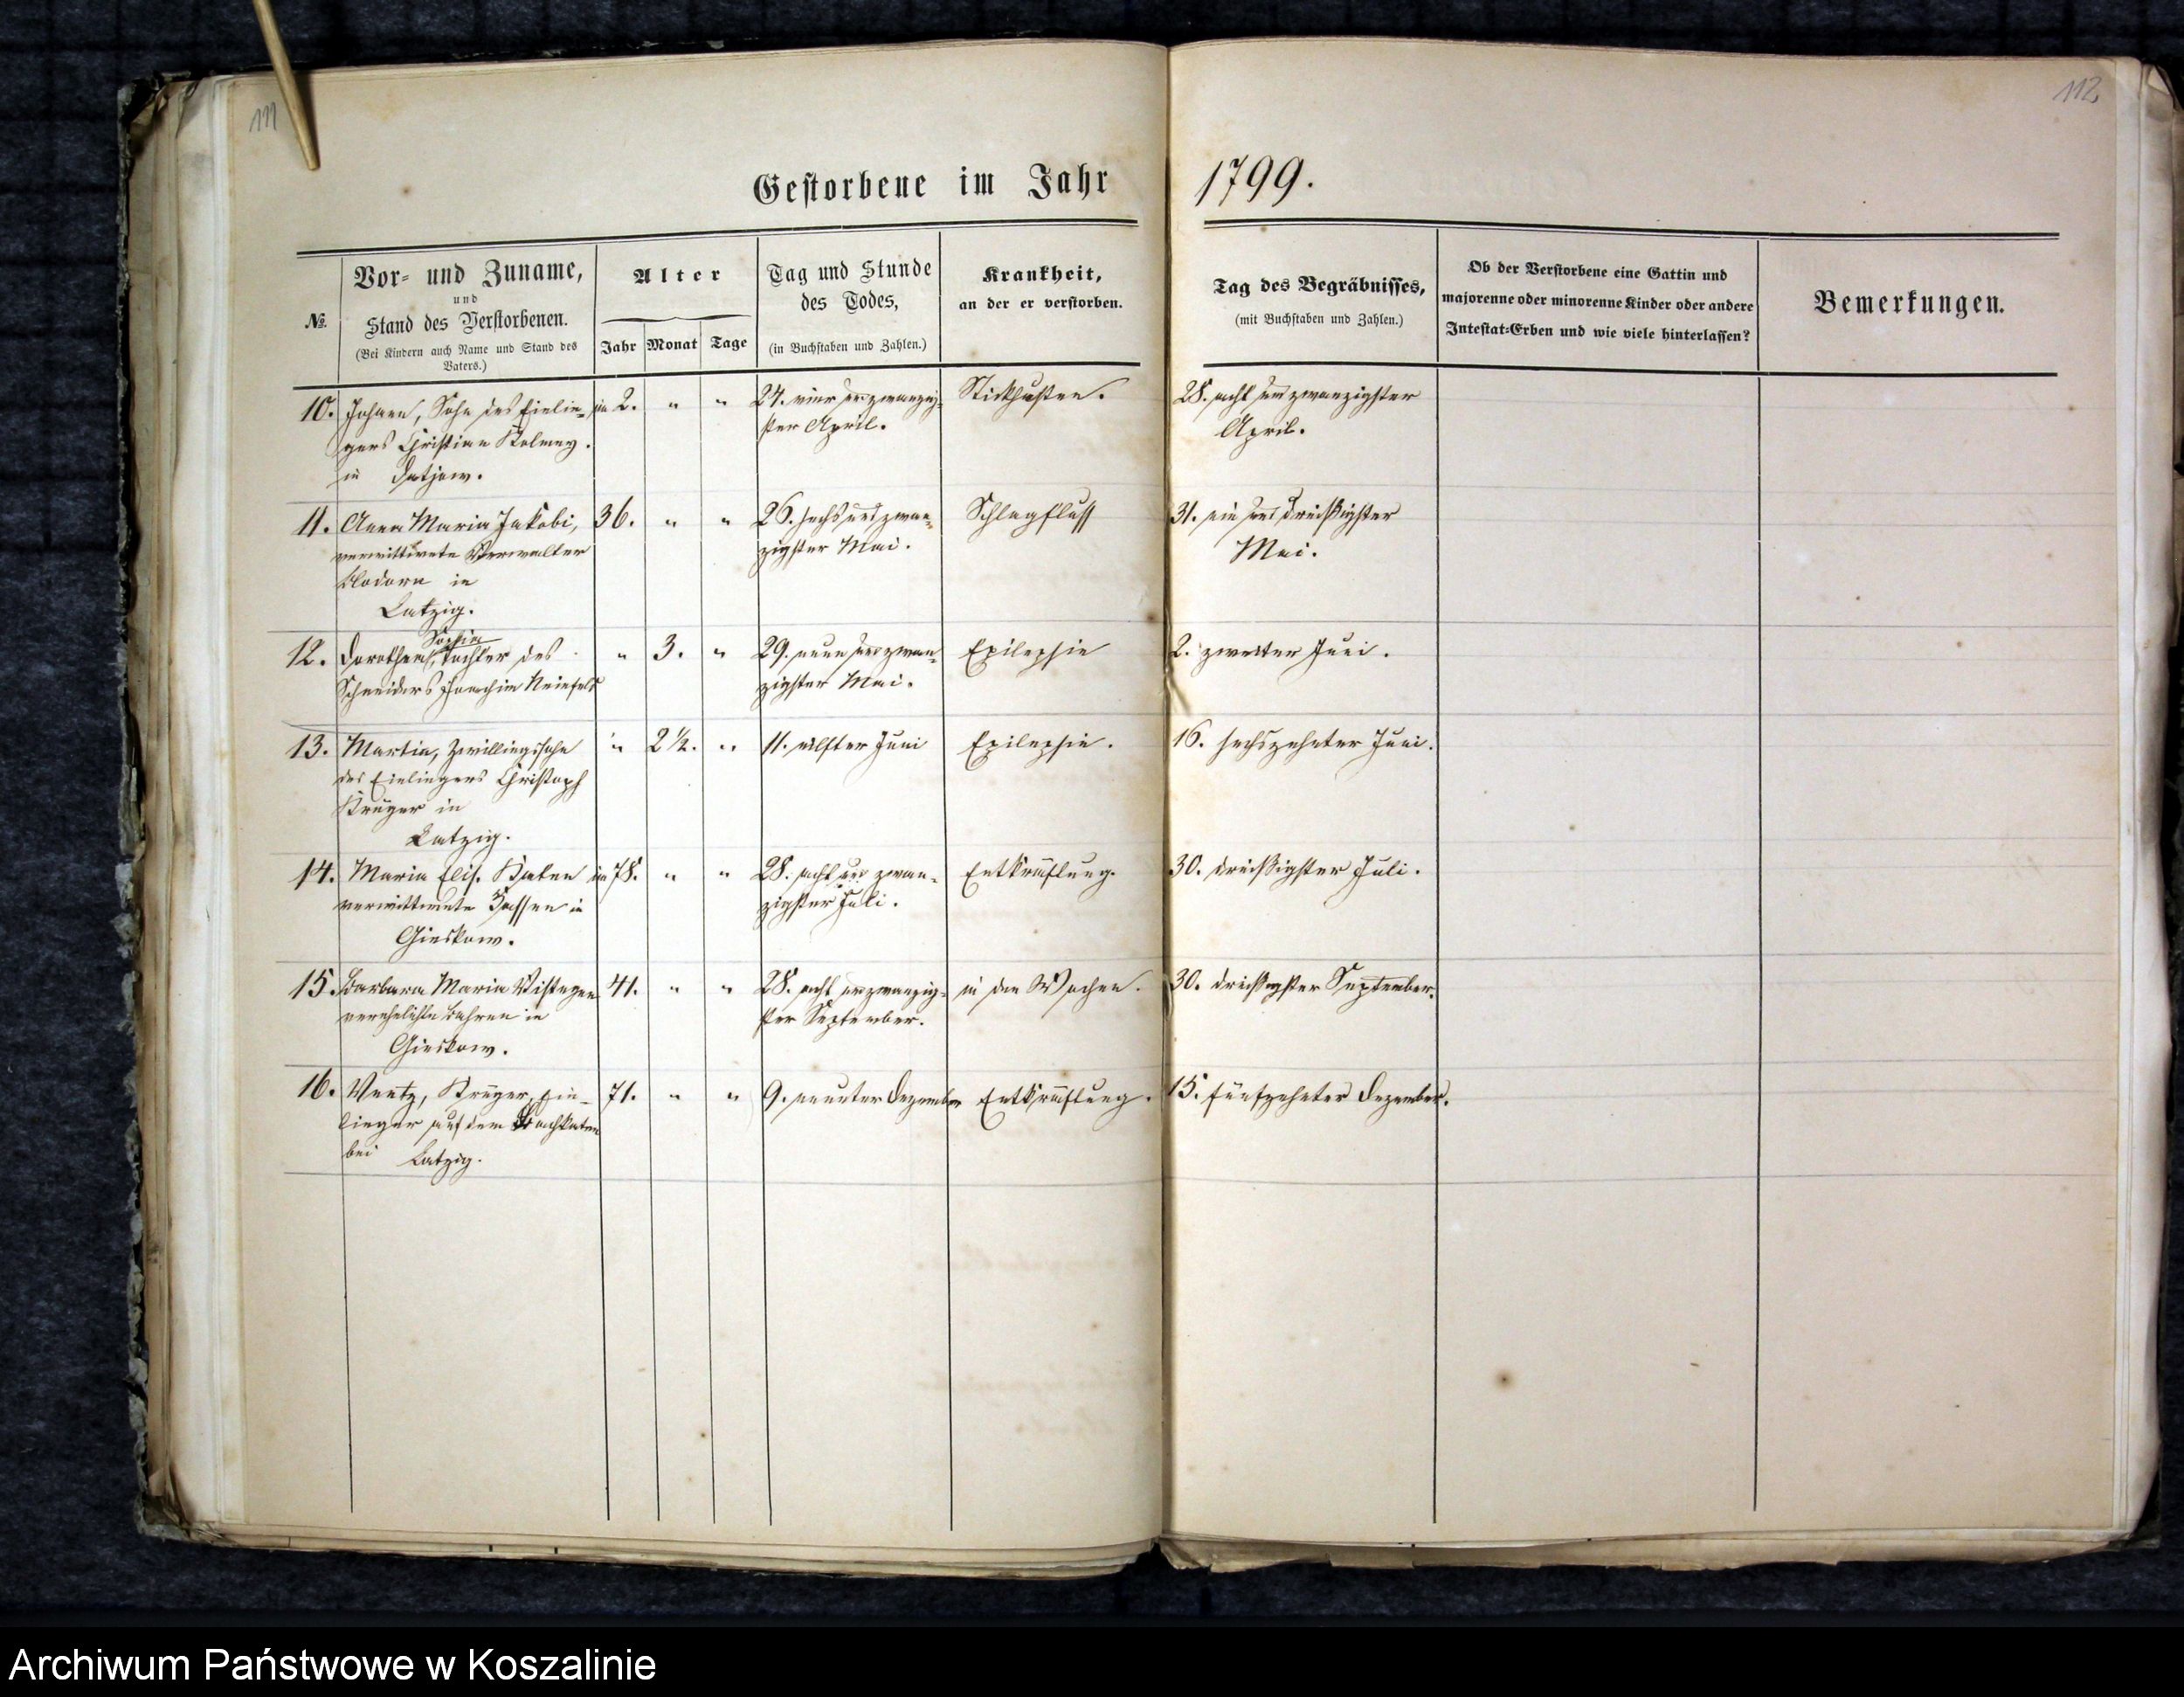 111
112
Gestorbene im Jahr 1799.
№.
Vor- und Zuname,
und
Stand des Verstorbenen.
(Bei Kindern auch Name und Stand des
Vaters.)
Alter
Jahr Monat Tage
Tag und Stunde
des Todes,
(in Buchstaben und Zahlen.)
Krankheit,
an der er verstorben.
Tag des Begräbnisses,
(mit Buchstaben und Zahlen.)
Ob der Verstorbene eine Gattin und
majorenne oder minorenne Kinder oder andere
Intestat-Erben und wie viele hinterlassen?
Bemerkungen.
10. Johann, Sohn des Einlie- im 2. " " 24. vier und zwanzig- Stickhusten. 28. acht und zwanzigster
gers Christian ster April. April.
in Datjow.
11. Anna Maria Jakobi, 36. " " 26. sechs und zwan- Schlagfluss 31. ein und dreißigster
verwittwete Verwalter zigster Mai. Mai.
in
Latzig.
Sophia
12. Dorothea, Tochter des " 3. " 29. neun und zwan- Epilepsie 2. zweiter Juni.
Schneiders Joachim zigster Mai.
13. Martin, Zwillingssohn " 2 ½. " 11. eilfter Juni Epilepsie. 16. sechszehnter Juni.
des Einliegers Christoph
Krüger in
Latzig.
14. Maria Elis. im 78. " " 28. acht und zwan- Entkräftung. 30. dreißigster Juli.
verwittwete in zigster Juli.
Gieskow.
15. Barbara Maria 41. " " 28. acht und zwanzig- in den Wochen. 30. dreißigster September.
verehelichte in ster September.
Gieskow.
16. Krüger, Ein- 71. " " 9. neunter Dezember Entkräftung. 15. fünfzehnter Dezember.
lieger auf dem
bei Latzig.
Archiwum Państwowe w Koszalinie